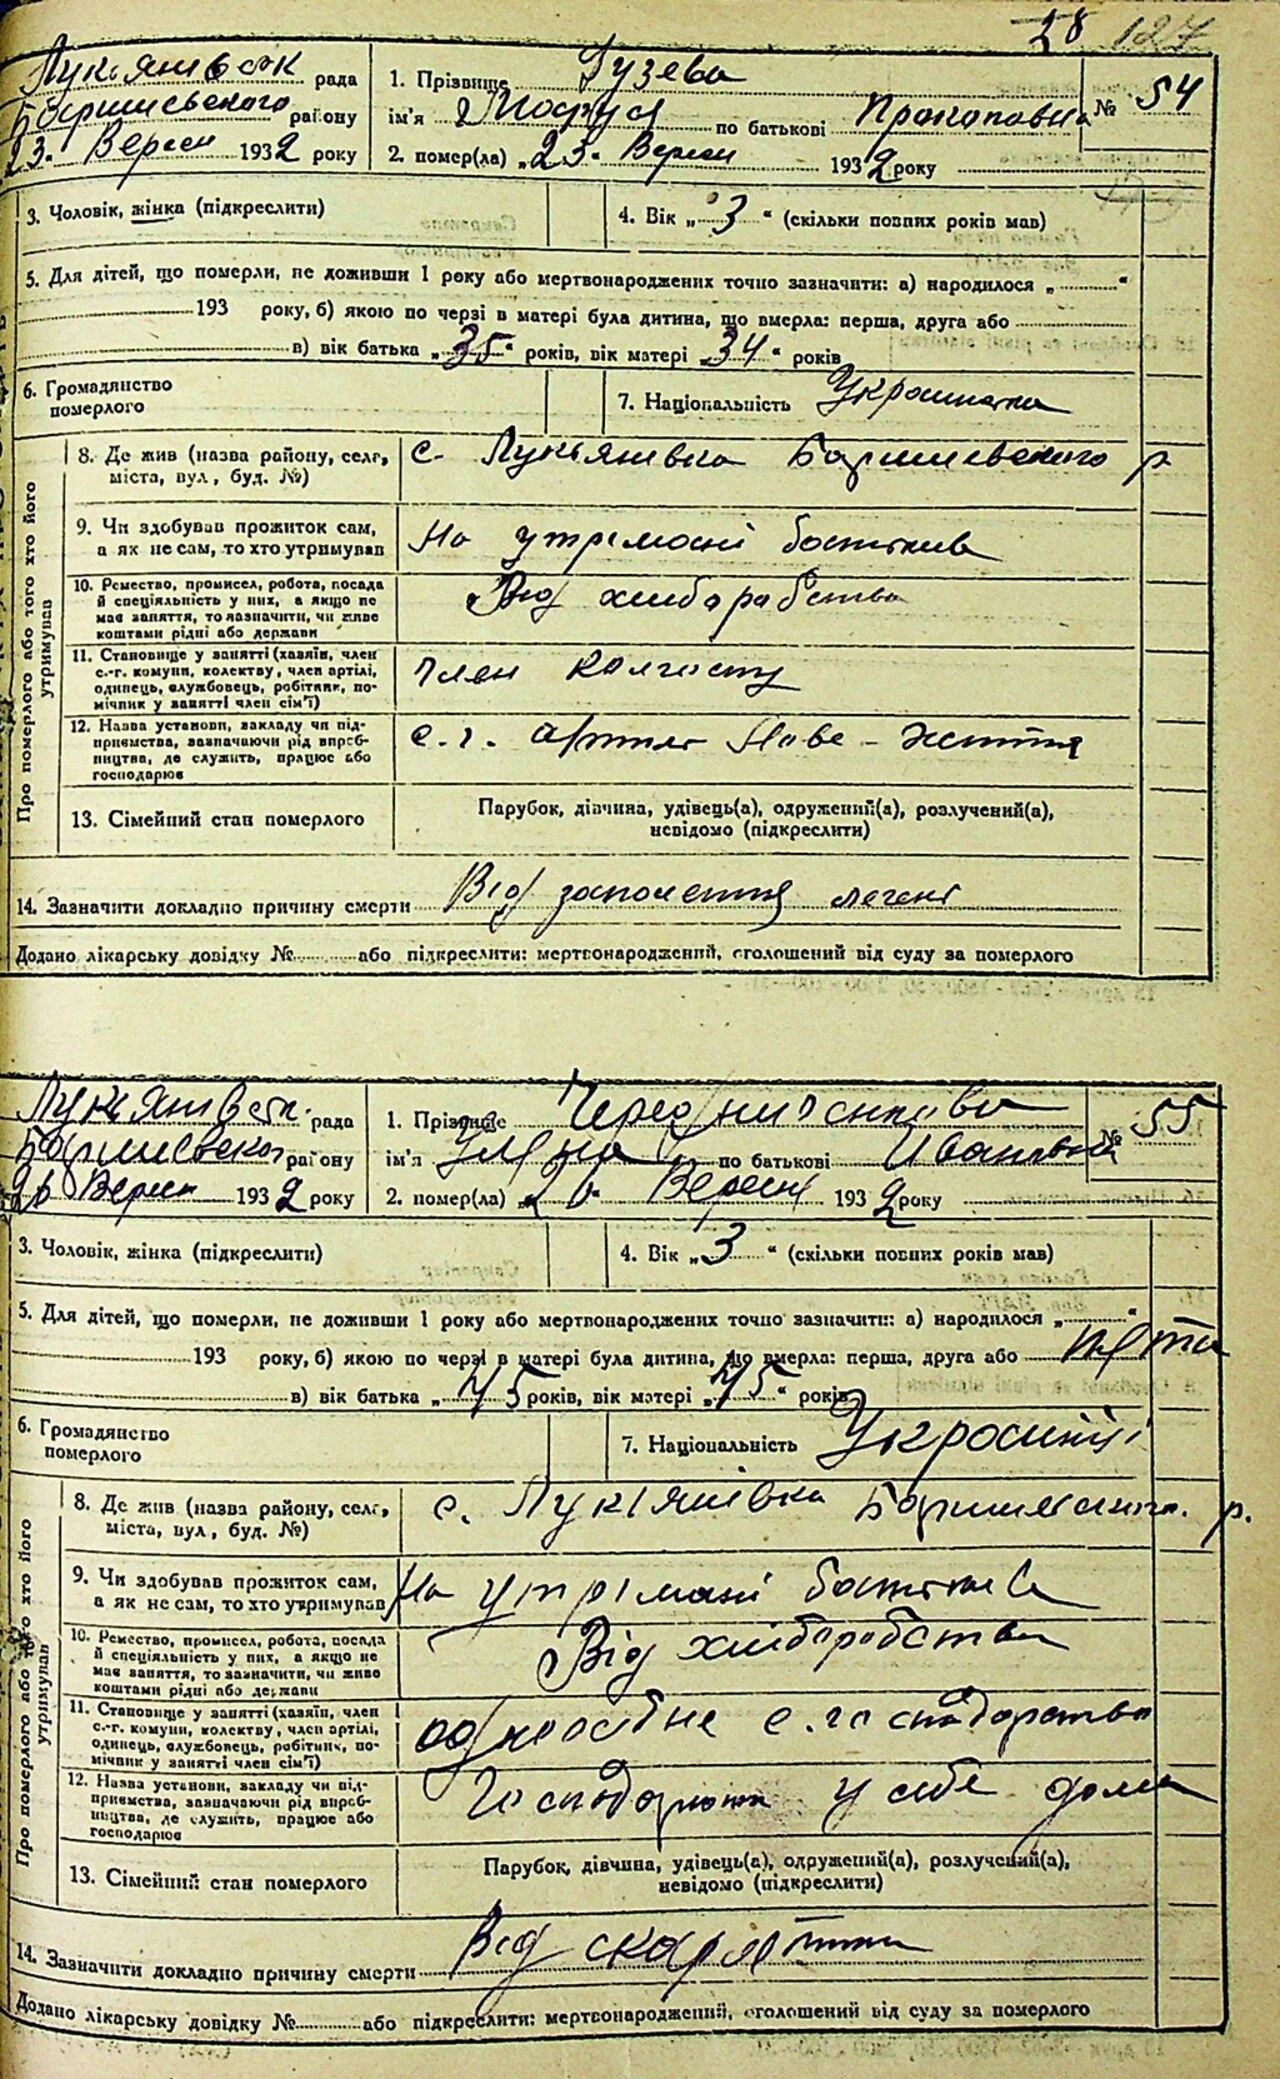 28 127
Лукьянівськ рада
Баришевського району
23. Вересн 1932 року
1. Прізвище Гузева
ім'я Маруся по батькові Прокоповна
2. помер(ла) „23. Вересн 1932 року
№ 54
3. Чоловік, жінка (підкреслити) 4. Вік „3“ (скільки повних років мав)
5. Для дітей, що померли, не доживши 1 року або мертвонароджених точно зазначити: а) народилося „ “
193 року, б) якою по черзі в матері була дитина, що вмерла: перша, друга або
в) вік батька „35“ років, вік матері „34“ років
6. Громадянство
померлого
7. Національність Украінка
Про померлого або того хто його
утримував
8. Де жив (назва району, село,
міста, вул., буд. №)
с. Лукьянівка Баришевського р
9. Чи здобував прожиток сам,
а як не сам, то хто утримував
На утрімані батьків
10. Ремество, промисел, робота, посада
й спеціяльність у них, а якщо не
має заняття, то зазначити, чи живе
коштами рідні або держави
Від хліборобства
11. Становище у занятті (хазяїн, член
с.-г. комуни, колектву, член артілі,
одинець, службовець, робітник, по-
мічник у занятті член сім'ї)
Член колгоспу
12. Назва установи, закладу чи під-
приємства, зазначаючи рід вироб-
ництва, де служить, працює або
господарює
с. г. артиль Нове-життя
13. Сімейний стан померлого
Парубок, дівчина, удівець(а), одружений(а), розлучений(а),
невідомо (підкреслити)
14. Зазначити докладно причину смерти Від запалення легені
Додано лікарську довідку № або підкреслити: мертвонароджений, оголошений від суду за померлого
Лукьянівськ. рада
Баришевског району
26 Вересн 1932 року
1. Прізвище Чередниченкова
ім'я Уляна по батькові Ивановна
2. помер(ла) „26. Вересні 1932 року
№ 55
3. Чоловік, жінка (підкреслити) 4. Вік „3“ (скільки повних років мав)
5. Для дітей, що померли, не доживши 1 року або мертвонароджених точно зазначити: а) народилося „ “
193 року, б) якою по черзі в матері була дитина, що вмерла: перша, друга або пята
в) вік батька „45 років, вік матері „45“ років
6. Громадянство
померлого
7. Національність Украінці
Про померлого або того хто його
утримував
8. Де жив (назва району, село,
міста, вул., буд. №)
с. Лукіянівка Баришевського. р.
9. Чи здобував прожиток сам,
а як не сам, то хто утримував
На утрімані батьків
10. Ремество, промисел, робота, посада
й спеціяльність у них, а якщо не
має заняття, то зазначити, чи живе
коштами рідні або держави
Від хліборобства
11. Становище у занятті (хазяїн, член
с.-г. комуни, колектву, член артілі,
одинець, службовець, робітник, по-
мічник у занятті член сім'ї)
одноосібне с. господарство
12. Назва установи, закладу чи під-
приємства, зазначаючи рід вироб-
ництва, де служить, працює або
господарює
у себе дома
13. Сімейний стан померлого
Парубок, дівчина, удівець(а), одружений(а), розлучений(а),
невідомо (підкреслити)
14. Зазначити докладно причину смерти Від скарлятини
Додано лікарську довідку № або підкреслити: мертвонароджений, оголошений від суду за померлого